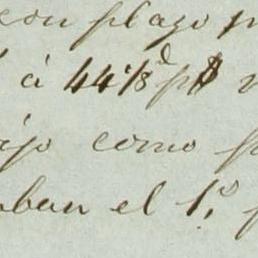 con plazo
á 44 1/8 d p$
ijo como
ban el 1.º